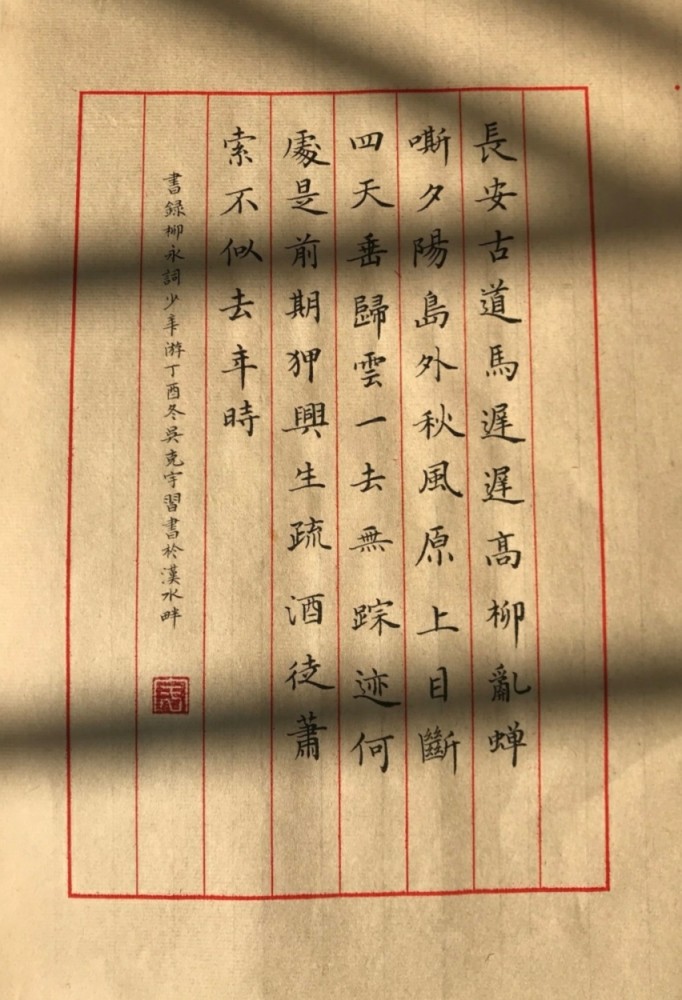 長安古道馬遲遲高柳亂蝉
嘶夕陽島外秋風原上目斷
四天垂歸雲一去無踪迹何
處是前期狎興生疏酒徒蕭
索不似去年時
書録柳永詞少年游丁酉冬吳克宇習書於漢水畔